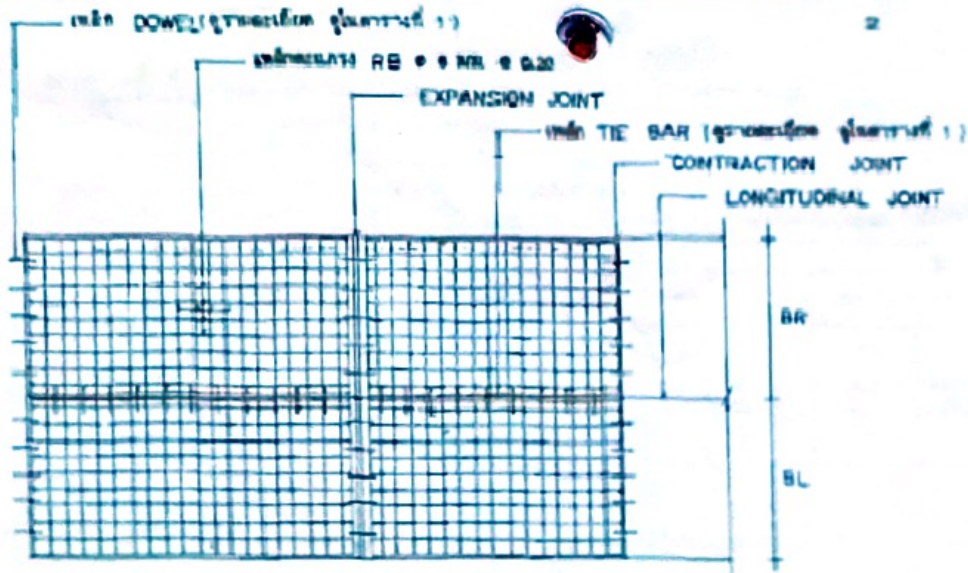 2
เหล็ก DOWEL (ดูรายละเอียด ดูในตารางที่ 1)
เหล็กตะแกรง RB 6 มม. 0.20
EXPANSION JOINT
เหล็ก TIE BAR (ดูรายละเอียด ดูในตารางที่ 1)
CONTRACTION JOINT
LONGITUDINAL JOINT
BR
BL